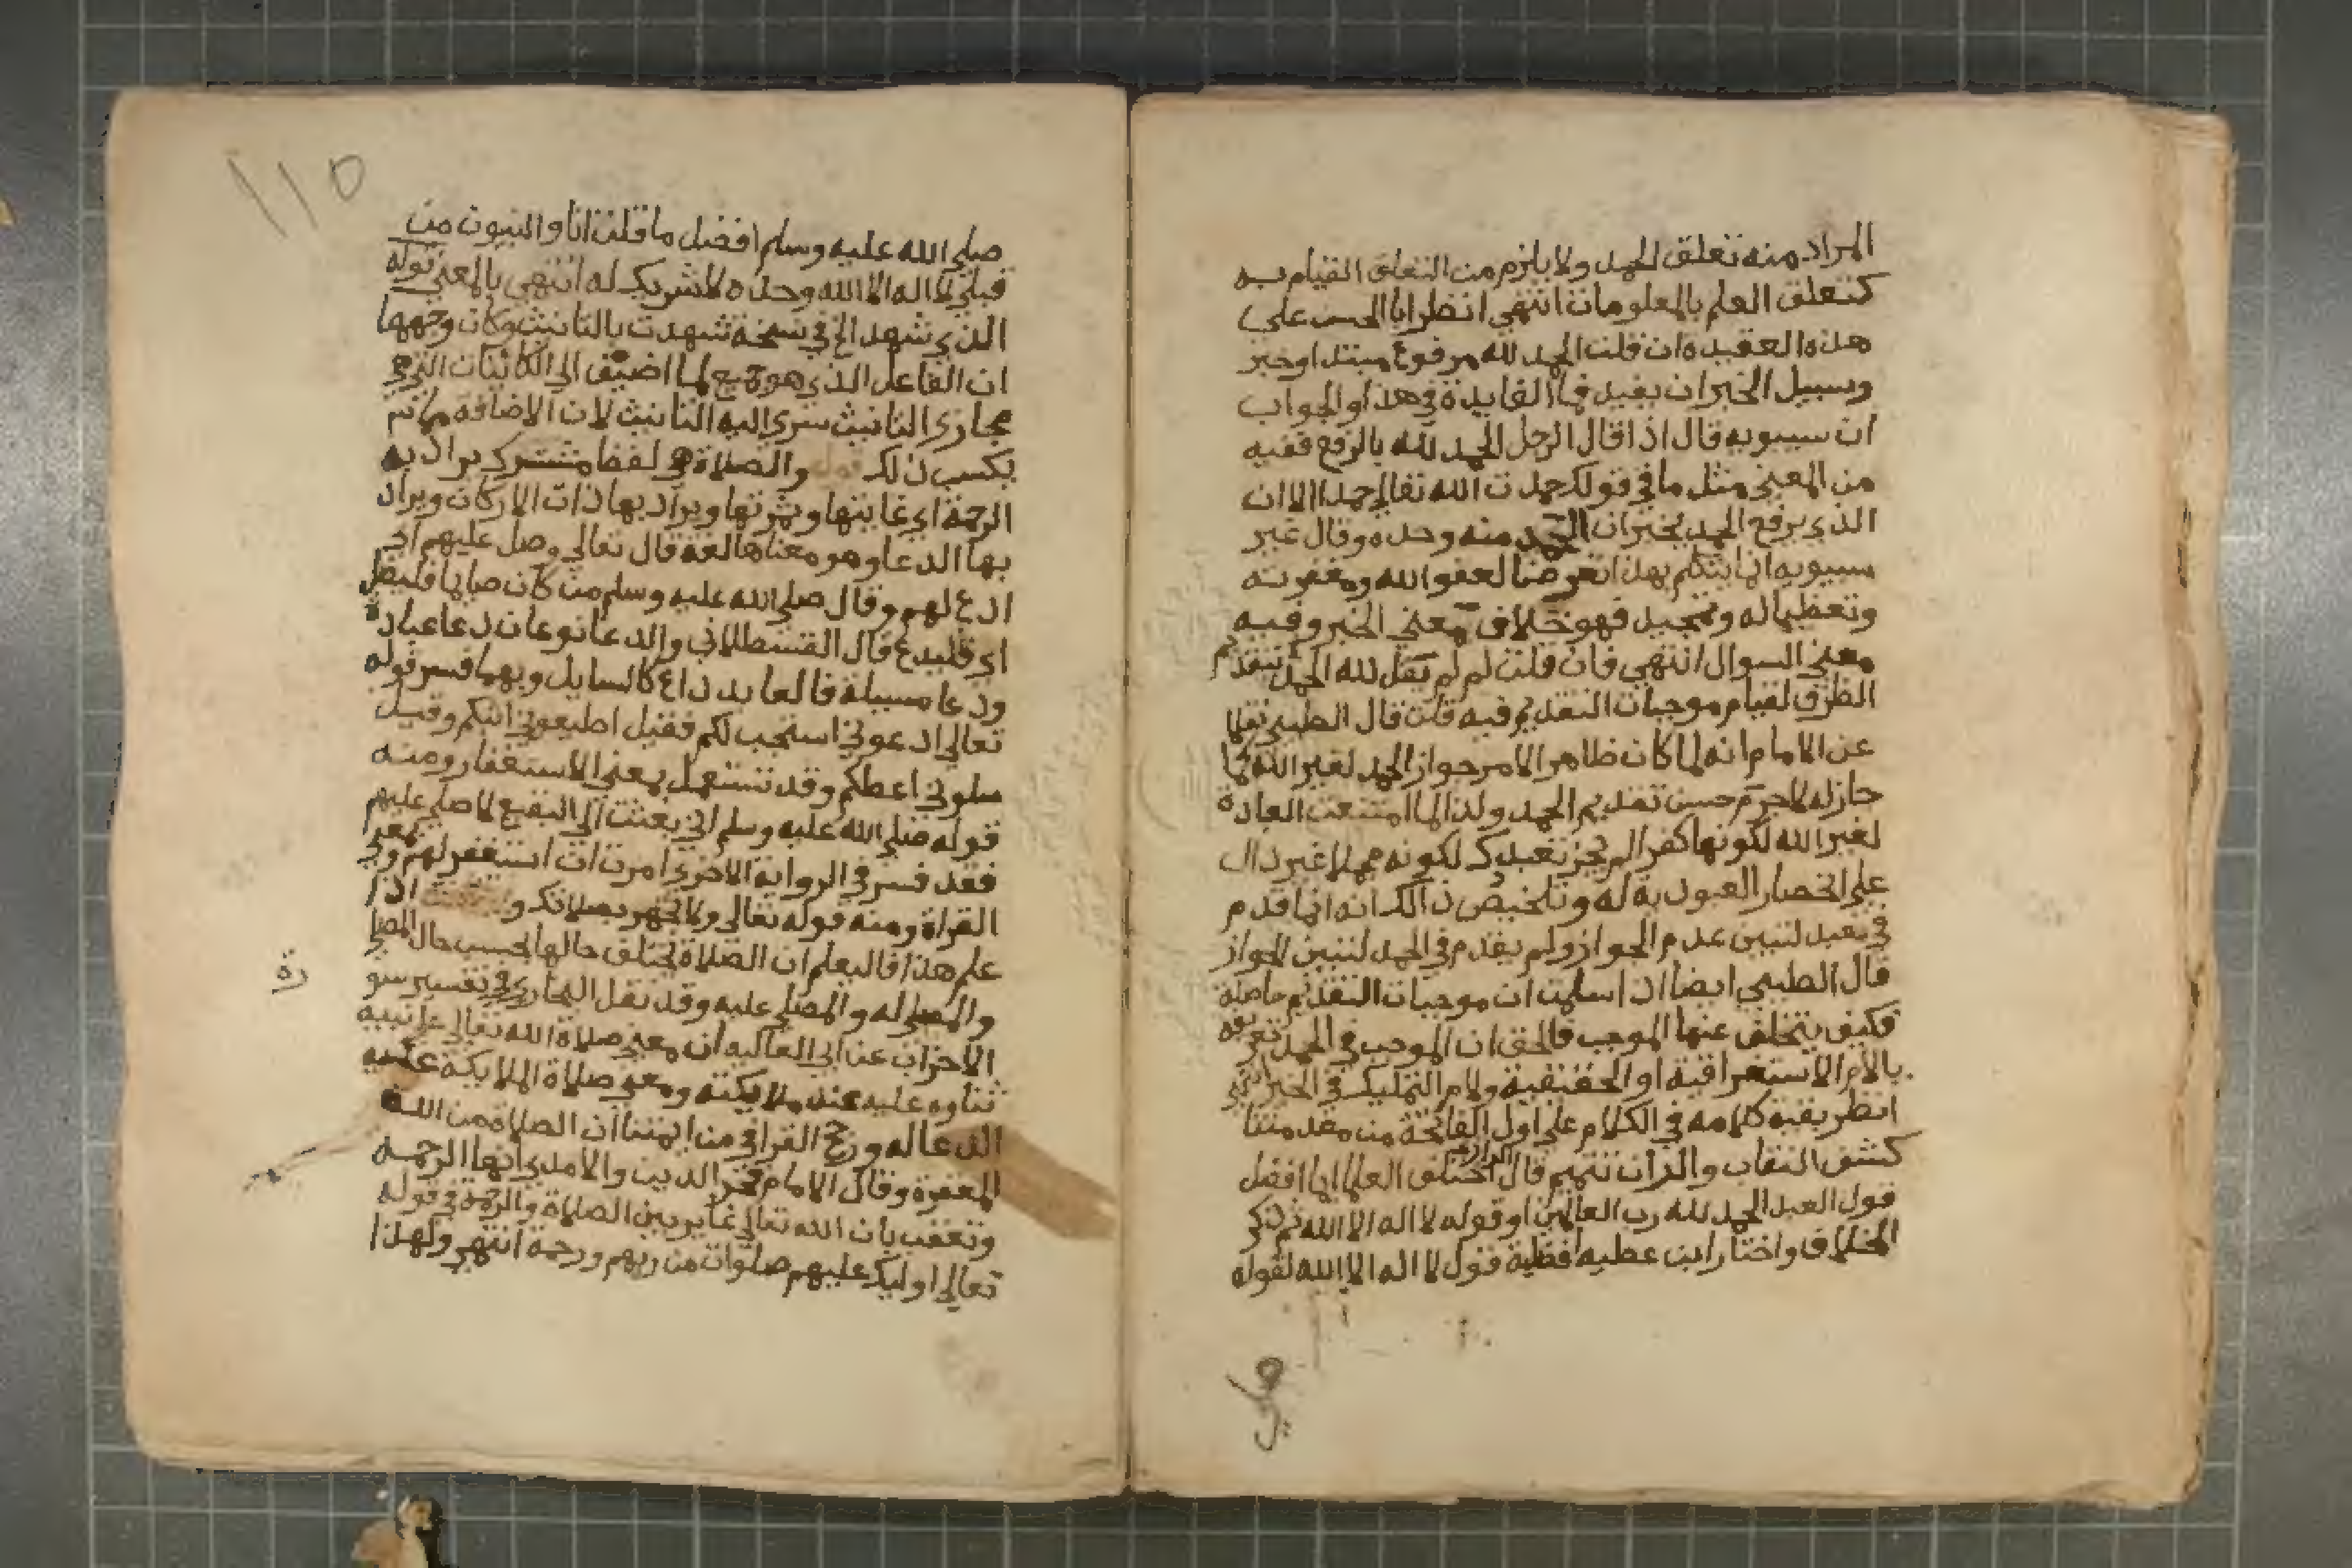 المراد منه تعلق الحمد ولا يلزم من التعلق القيام به
كتعلق العلم بالمعلومات انتهى انظر ابا الحسن علي
هذه العقيده ان قلت الحمد لله مرفوع مبتدا وخبر
وسبيل الخبر ان يفيد فما الفايدة في هذا والجواب
ان سيبويه قال اذا قال الرجل الحمد لله بالرفع ففيه
من المعني مثل ما في قولك حمدت الله تعالي حمدا الا ان
الذي يرفع الحمد يخبر ان الحمد منه وحده وقال غير
سيبويه انما يتكلم بهذا تعرضا لعفو الله ومغفرته
وتعظيما له وتمجيد فهو خلاف معني الخبر وفيه
معني السوال انتهي فان قلت لم لم يقل لله الحمد بتقديم
الظرف لقيام موجبات التقديم فيه قلت قال الطيبي نقلا
عن الامام انه لما كان ظاهر الامر جواز الحمد لغير الله كما
جاز له لا جرم حسن تقديم الحمد ولذا لما امتنعت العبادة
لغير الله لكونها كفرا لم يجز نعبدك لكونه محملا غير دال
علي انحصار العبودية له وتلخيص ذالك انه انما قدم
في نعبد لتبين عدم الجواز ولم يقدم في الحمد لتبين الجواز
قال الطيبي ايضا اذا سلمت ان موجبات التقديم حاصلة
فكيف يتخلف عنها الموجب فالحق ان الموجب في الحمد تعريفه
بالام الاستغراقية او الحقيقية ولام التمليك في الخبر انتهي
انظر بقية كلامه في الكلام علي اول الفاتحة من مقدمتنا
كشف النقاب والران تتميم قال اختلف العلما ايما افضل
قول العبد الحمد لله رب العالمين او قوله لا اله الا الله ثم ذكر
الخلاف واختار ابن عطيه افظلية قول لا اله الا الله لقوله
صلي
١١٥
صلي الله عليه وسلم افضل ما قلت انا والنبيون من
قبلي لا اله الا الله وحده لا شريك له انتهي بالمعني قوله
الذي شهد الخ في نسخة شهدت بالتانيث وكان وجهها
ان الفاعل الذي هو جميع لما اضيف الي الكاينات التي هي
مجازي التانيث سري اليه التانيث لان الاضافة مما
يكسب ذلك قوله والصلاة هو لفظ مشترك يراد به
الرحمة اي غايتها وثمرتها ويراد بها ذات الاركان ويراد
بها الدعا وهو معناها لغة قال تعالي وصل عليهم اي
ادع لهم وقال صلي الله عليه وسلم من كان صايما فليصل
اي فليدع قال القسطلاني والدعا نوعان دعا عبادة
ودعا مسيلة فالعابد داع كالسايل وبهما فسر قوله
تعالي ادعوني استجب لكم فقيل اطيعوني اثبكم وقيل
سلوني اعطكم وقد تستعمل بمعني الاستغفار ومنه
قوله صلي الله عليه وسلم اني بعثت الي البقيع لاصلي عليهم
فقد فسر في الرواية الاخري امرت ان استغفر لهم وبمعني
القراة ومنه قوله تعالي ولا تجهر بصلاتك و اذا
علم هذا فاليعلم ان الصلاة تختلف حالها بحسب حال المصلي
والمصلي له والمصلي عليه وقد نقل البخاري في تفسير سو
رة
الاحزاب عن ابي العاليه ان معني صلاة الله تعالي علي نبيه
ثناوه عليه عند ملايكته ومعني صلاة الملايكة عليه
الدعا له ورجح القرافي من ايمتنا ان الصلاة من الله
المغفرة وقال الامام فخر الدين والامدي انها الرحمه
وتعقب بان الله تعالي غاير بين الصلاة والرحمة في قوله
تعالي اوليك عليهم صلوات من ربهم ورحمة انتهي ولهذا